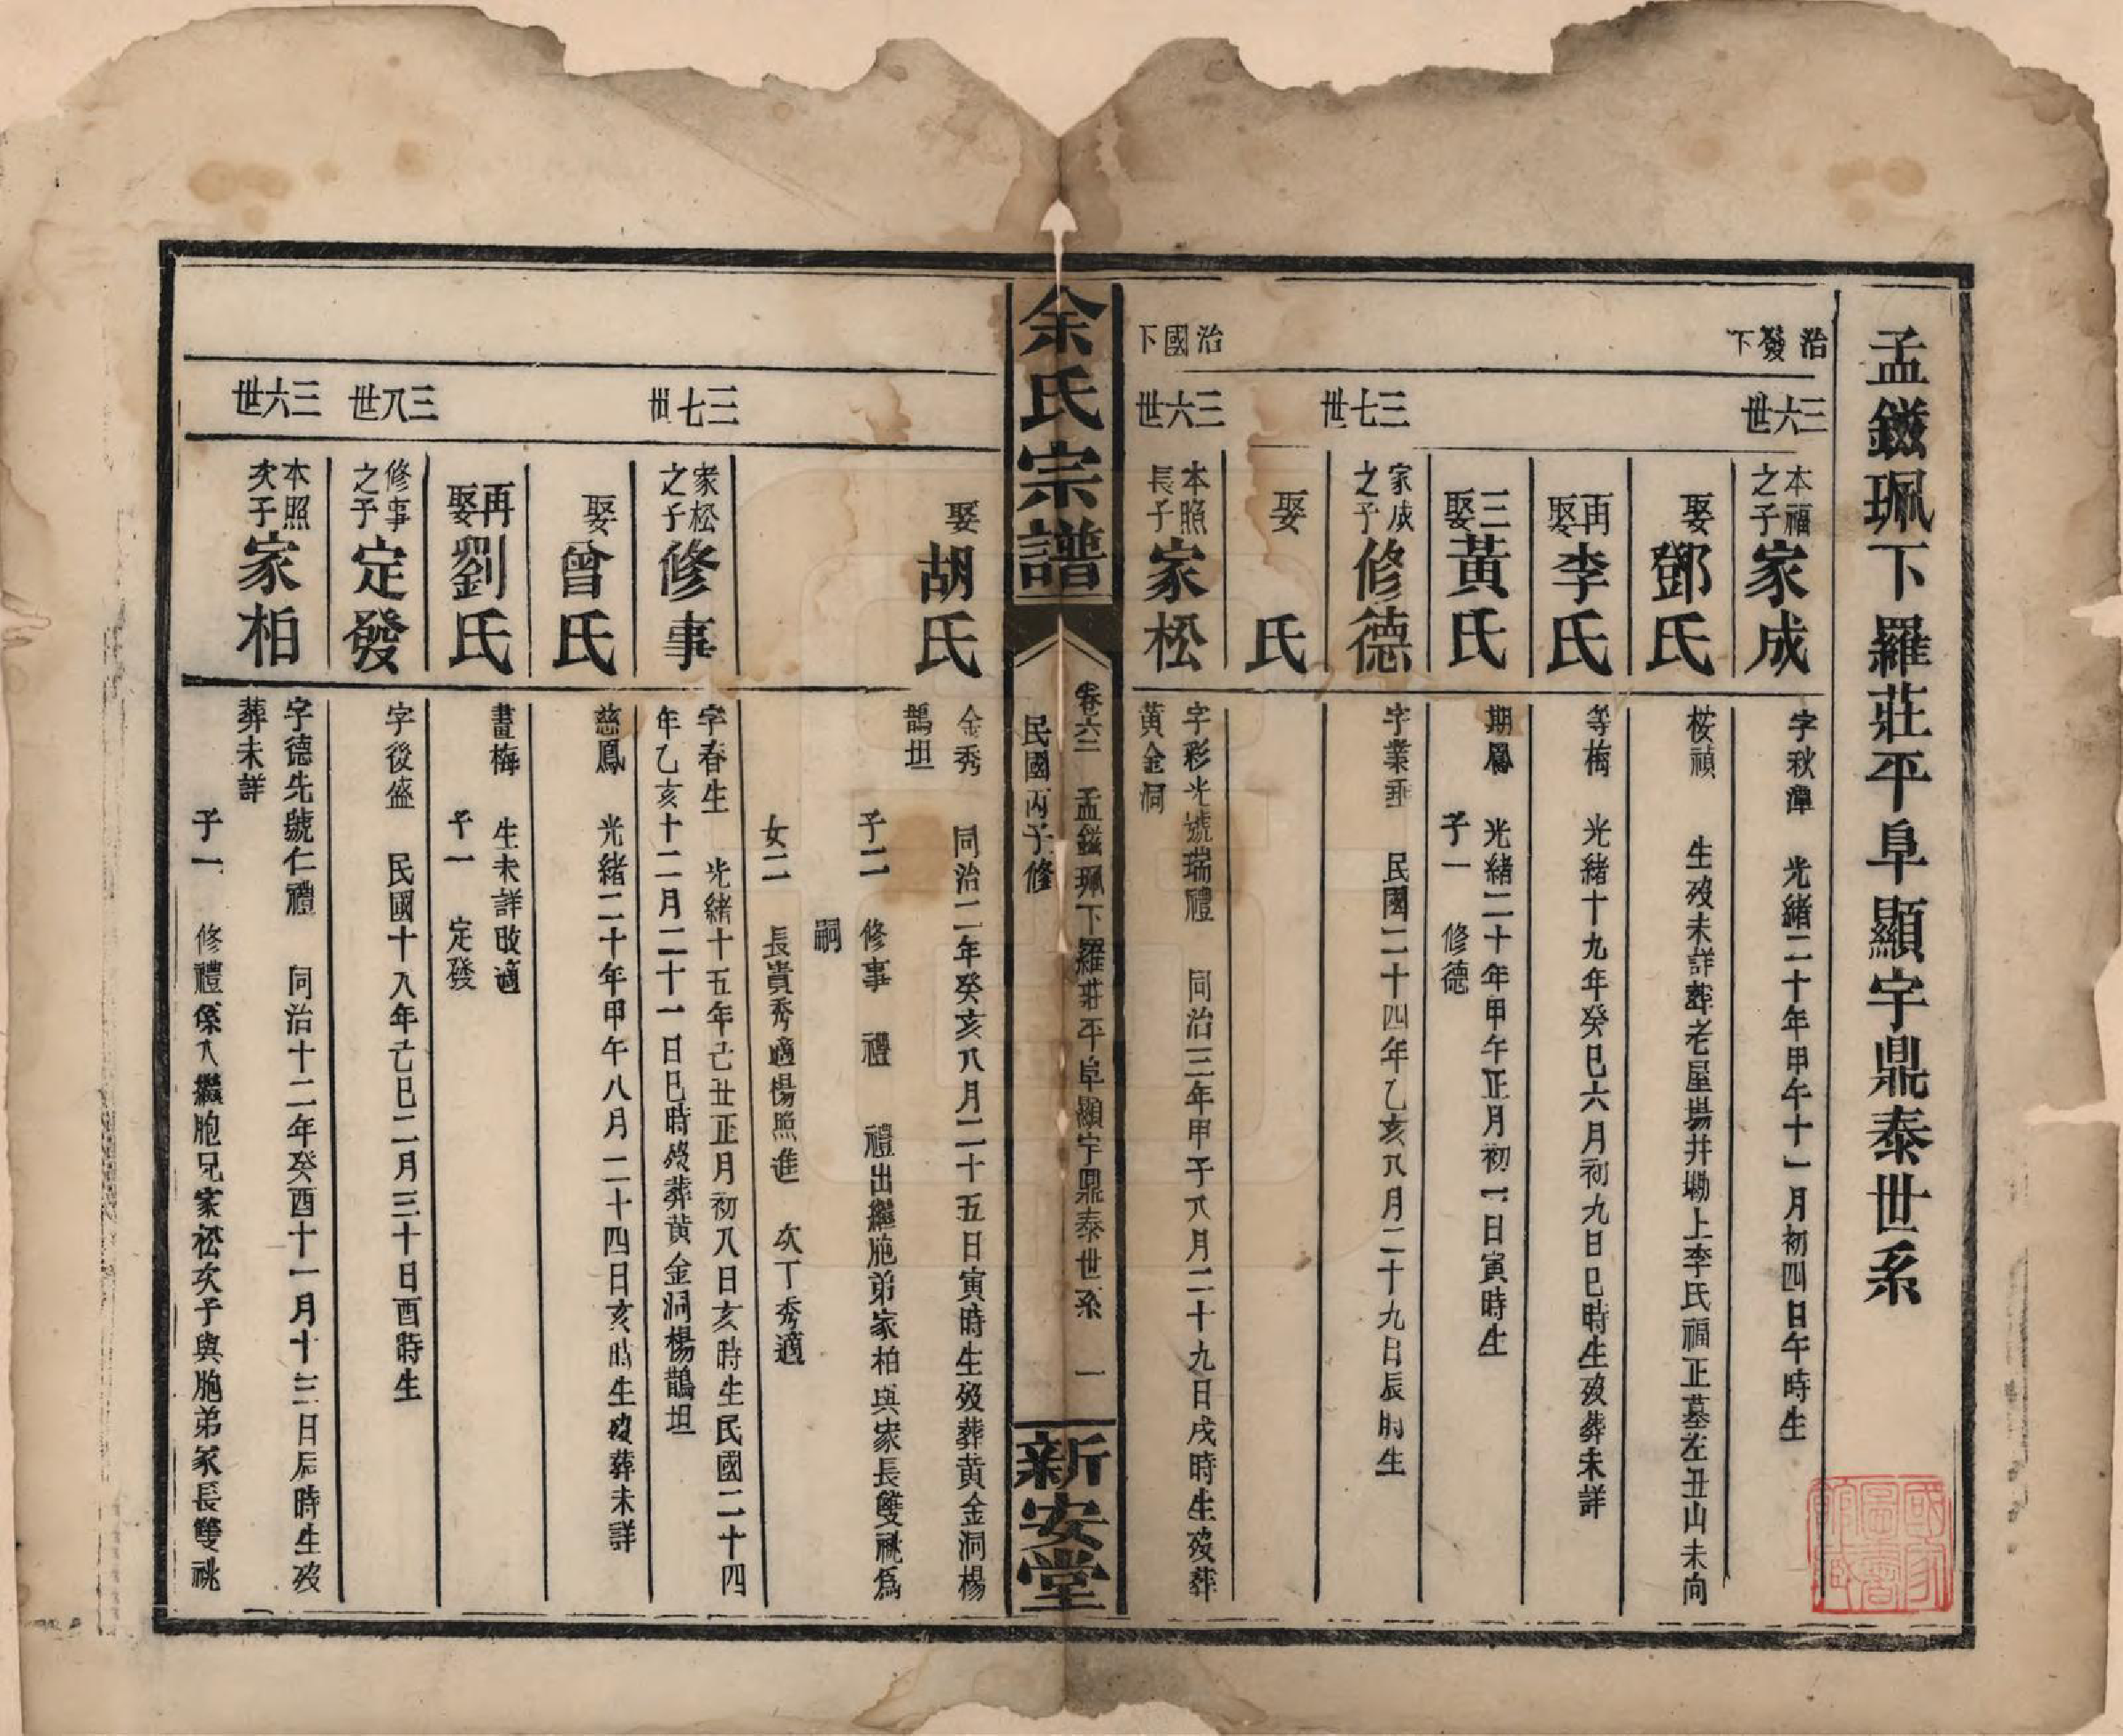 孟鎡珮下羅莊平阜顯宇鼎泰世系
治發下
三六世
本福之子家成
字秋潭 光緒二十年甲午十一月初四日午時生
娶鄧氏
桉禎 生歿未詳葬老屋場井塝上李氏福正墓左丑山未向
再娶李氏
等梅 光緒十九年癸巳六月初九日巳時生歿葬未詳
三娶黃氏
期鳳 光緒二十年甲午正月初一日寅時生
子一 修德
三七世
家成之子修德
字業垂 民國二十四年乙亥八月二十九日辰時生
娶 氏
治國下
三六世
本照長子家松
字彩光號瑞禮 同治三年甲子八月二十九日戌時生歿葬
黃金洞
余氏宗譜
卷六二 孟鎡珮下羅莊平阜顯宇鼎泰世系 一
民國丙子修
新安堂
娶胡氏
金秀 同治二年癸亥八月二十五日寅時生歿葬黃金洞楊
鵲坦
子二 修事 禮 禮出繼胞弟家柏與家長雙祧為
嗣
女二 長貴秀適楊照進 次丁秀適
三七世
家松之子修事
字春生 光緒十五年己丑正月初八日亥時生民國二十四
年乙亥十二月二十一日巳時歿葬黃金洞楊鵲坦
娶曾氏
慈鳳 光緒二十年甲午八月二十四日亥時生歿葬未詳
再娶劉氏
畫梅 生未詳改適
子一 定發
三八世
修事之子定發
字後盛 民國十八年己巳二月三十日酉時生
三六世
本照次子家柏
字德先號仁禮 同治十二年癸酉十一月十三日辰時生歿
葬未詳
子一 修禮係入繼胞兄家松次子與胞弟家長雙祧
國家圖書館藏